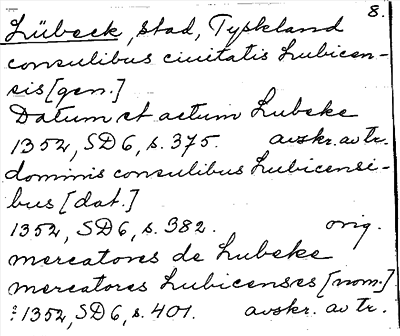 8.
Lübeck, stad, Tyskland
consulibus ciuitatis Lubicen-
sis [gen.]
Datum et actum Lubeke
1352, SD6, s. 375. avskr. av tr.
dominis consulibus Lubicensi-
bus [dat.]
1352, SD6, s. 382. orig.
mercatores de Lubeke
mercatores Lubicenses [nom.]
1352, SD6, s. 401. avskr. av tr.